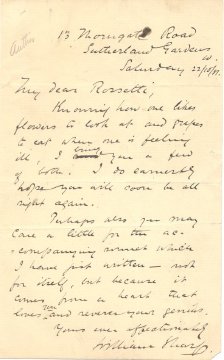 Author
13 Thorngate Road
Sutherland Gardens
W.
Saturday
My dear Rossetti,
Knowing how one likes
flowers to look at and grapes
to eat when one is feeling
ill, I bring you a few
of both. I do earnestly
hope you will soon be all
right again.
Perhaps also you may
care a little for the ac-
companying sonnet which
I have just written — not
for itself, but because it
comes from a heart that
loves you and reveres your genius.
Yours ever affectionately
William Sharp